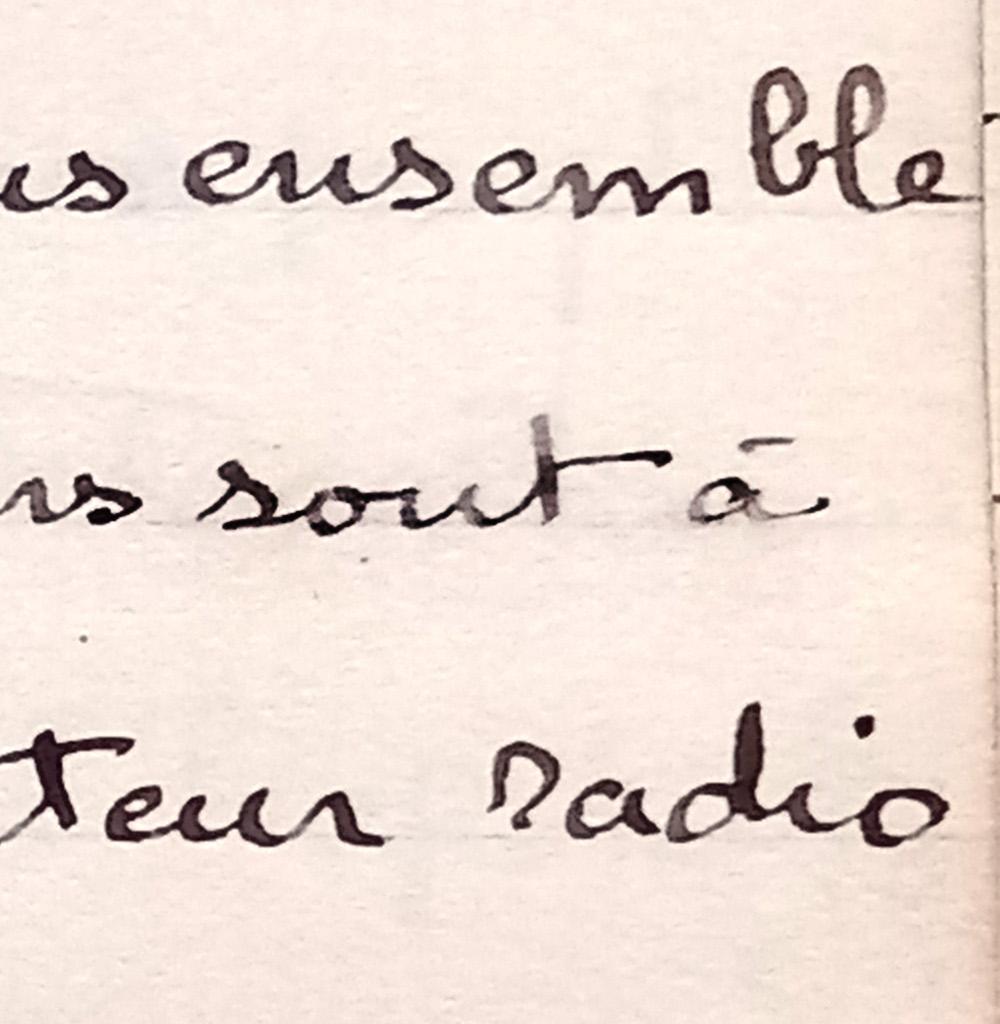 us ensemble
rs sont à
teur radio